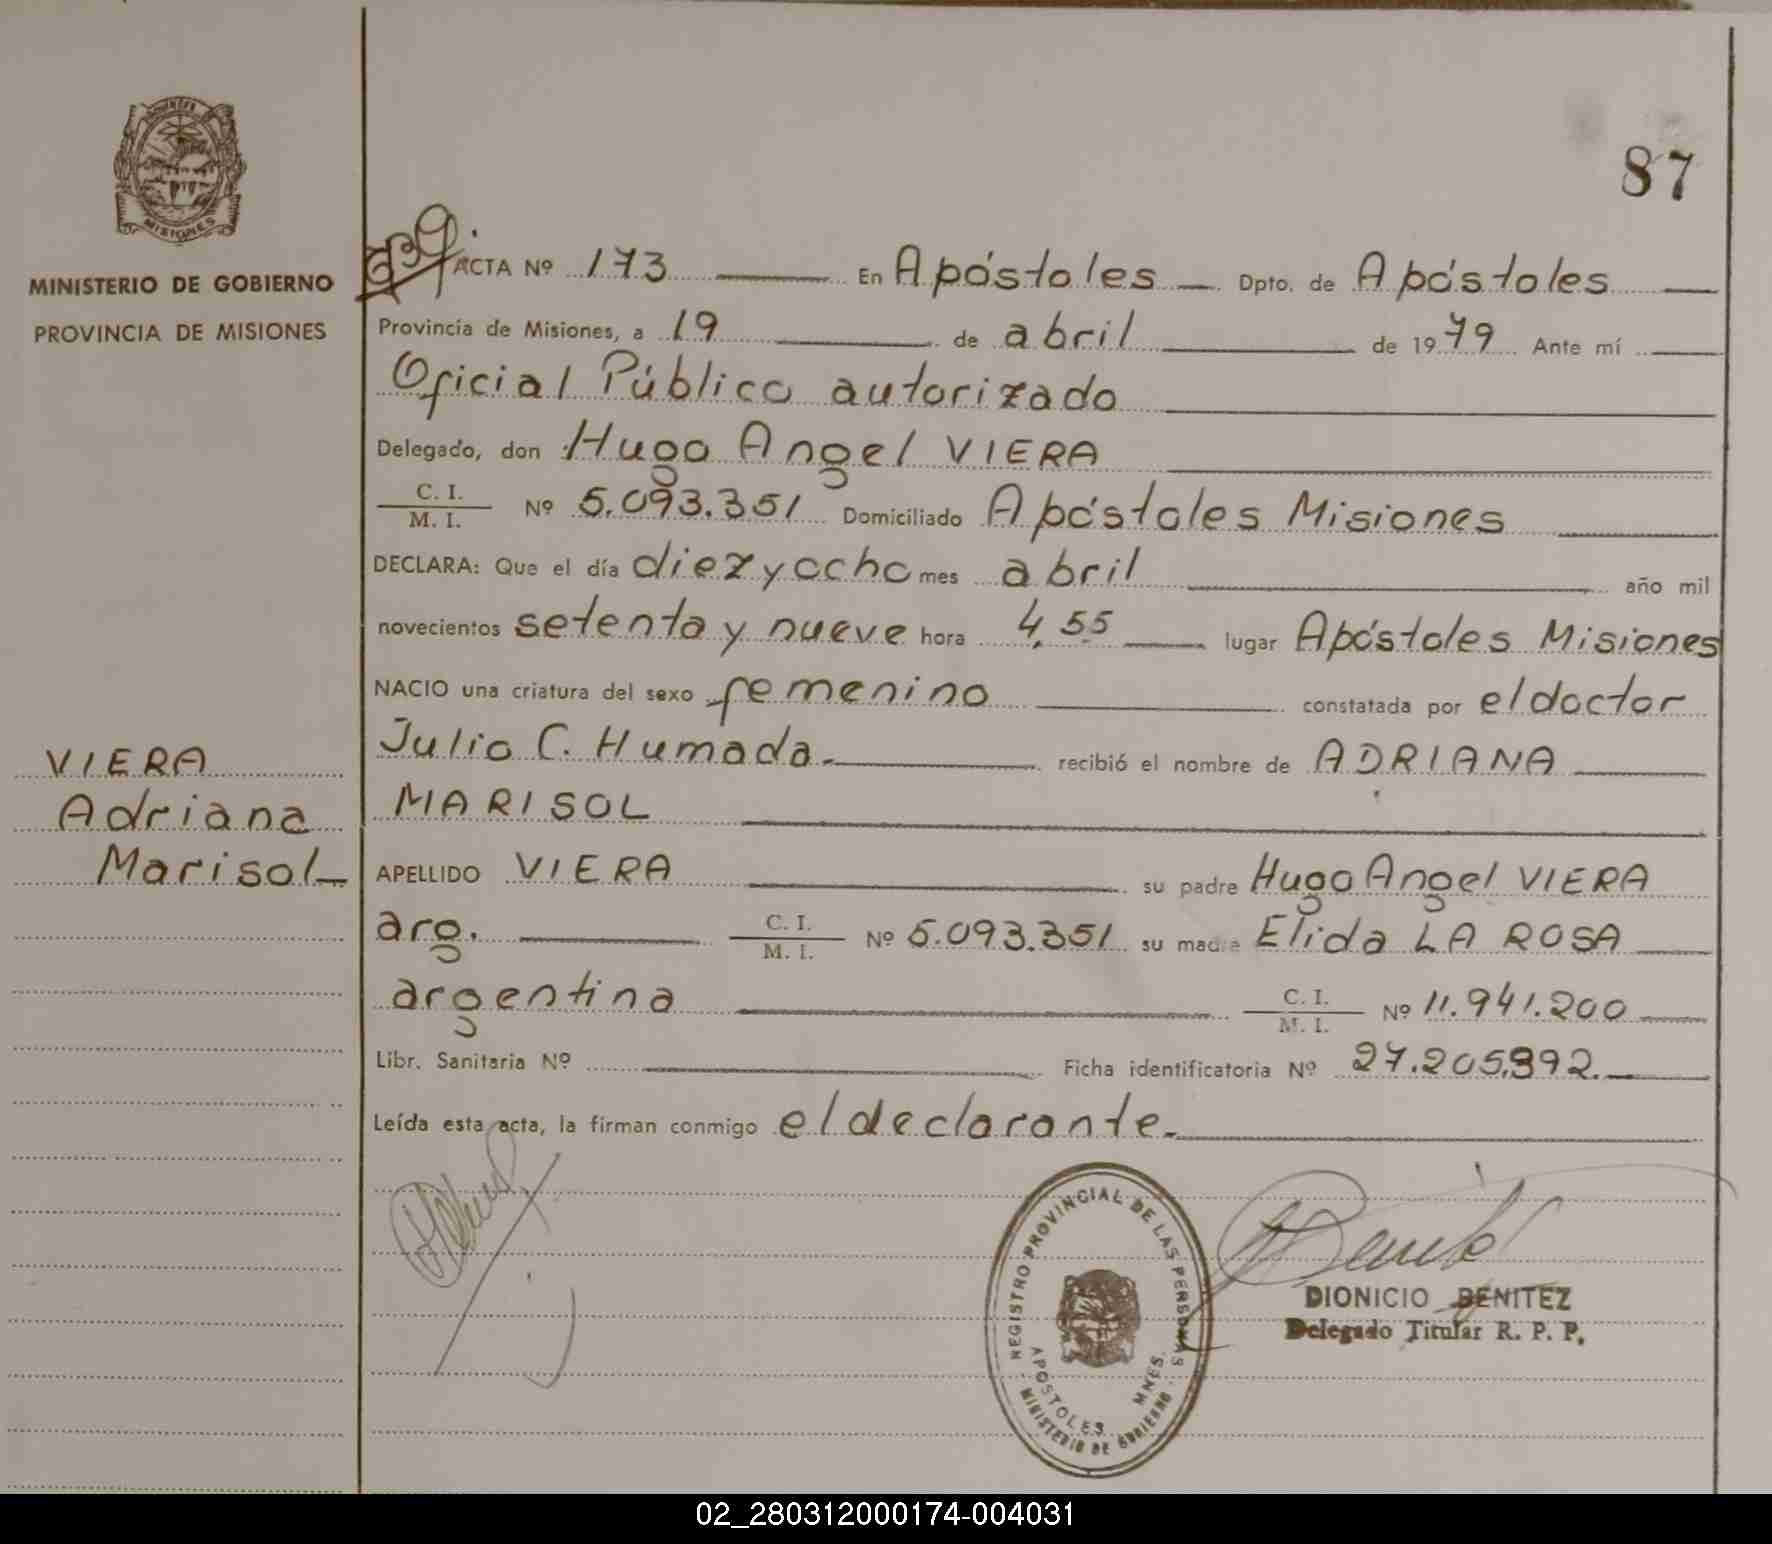 87
MISIONES
MINISTERIO DE GOBIERNO
PROVINCIA DE MISIONES
VIERA
Adriana
Marisol
ACTA Nº 173 En Apóstoles Dpto. de Apóstoles
Provincia de Misiones, a 19 de abril de 1979 Ante mí
Oficial Público autorizado
Delegado, don Hugo Angel VIERA
C. I.
M. I. Nº 5.093.351 Domiciliado Apóstoles Misiones
DECLARA: Que el día diez y ocho mes abril año mil
novecientos setenta y nueve hora 4,55 lugar Apóstoles Misiones
NACIO una criatura del sexo femenino constatada por el doctor
Julio C. Humada.- recibió el nombre de ADRIANA
MARISOL
APELLIDO VIERA su padre Hugo Angel VIERA
arg. C. I.
M. I. Nº 5.093.351 su madre Elida LA ROSA
argentina C. I.
M. I. Nº 11.941.200
Libr. Sanitaria Nº Ficha identificatoria Nº 27.205.392.-
Leída esta acta, la firman conmigo el declarante.-
REGISTRO PROVINCIAL DE LAS PERSONAS
APOSTOLES MNES.
MINISTERIO DE GOBIERNO
DIONICIO BENITEZ
Delegado Titular R. P. P.
02_280312000174-004031